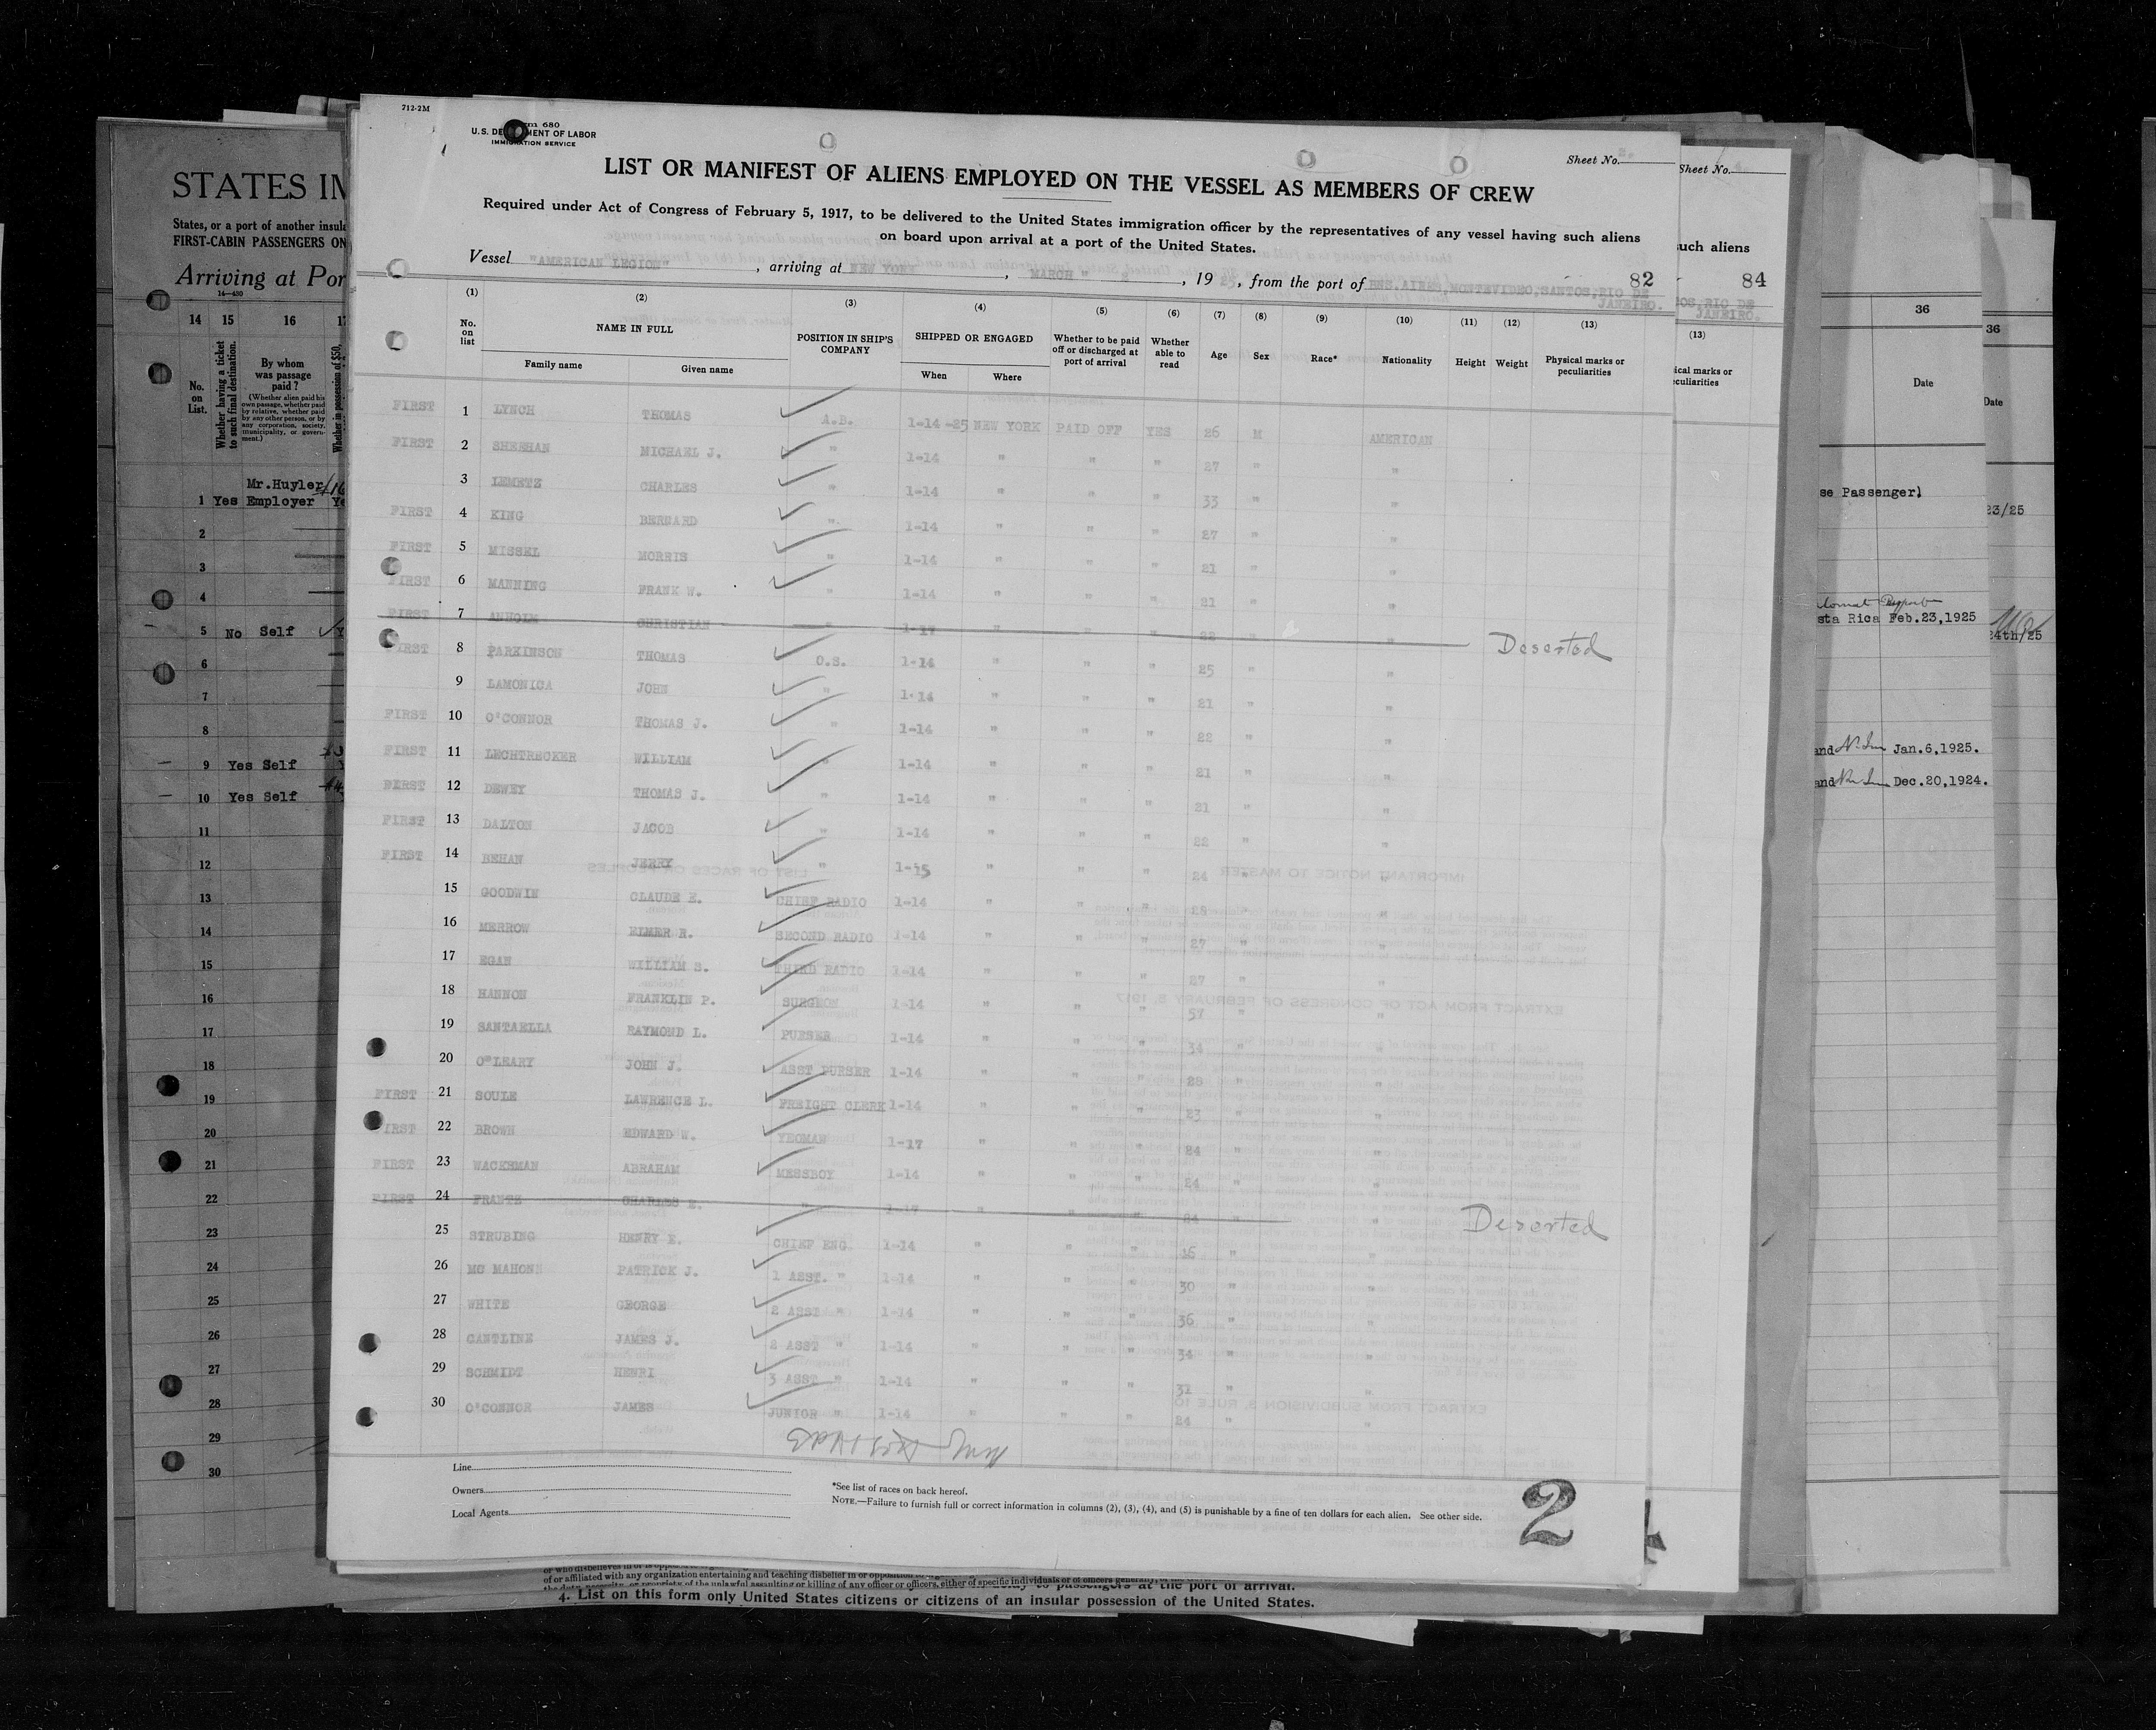 712-2M
U.S. DEPARTMENT OF LABOR
IMMIGRATION SERVICE
Sheet No.
LIST OR MANIFEST OF ALIENS EMPLOYED ON THE VESSEL AS MEMBERS OF CREW
Required under Act of Congress of February 5, 1917, to be delivered to the United States immigration officer by the representatives of any vessel having such aliens
on board upon arrival at a port of the United States.
Vessel "AMERICAN LEGION", arriving at NEW YORK, MARCH, 1925, from the port of BNS.AIRES,MONTEVIDEO,SANTOS,RIO DE
JANEIRO.
82
(1) (2) (3) (4) (5) (6) (7) (8) (9) (10) (11) (12) (13)
No. on list NAME IN FULL POSITION IN SHIP'S COMPANY SHIPPED OR ENGAGED Whether to be paid off or discharged at port of arrival Whether able to read Age Sex Race* Nationality Height Weight Physical marks or peculiarities
Family name Given name When Where
FIRST 1 LYNCH THOMAS A.B. 1-14-25 NEW YORK PAID OFF YES 26 M AMERICAN
FIRST 2 SHEEHAN MICHAEL J. " 1-14 " " " 27 " "
3 LEMETZ CHARLES " 1-14 " " " 33 " "
FIRST 4 KING BERNARD " 1-14 " " " 27 " "
FIRST 5 MISSEL MORRIS " 1-14 " " " 21 " "
FIRST 6 MANNING FRANK W. " 1-14 " " " 21 " "
FIRST 7 ANHOLM CHRISTIAN " 1-17 " " " 22 " " Deserted
FIRST 8 PARKINSON THOMAS O.S. 1-14 " " " 25 " "
9 LAMONICA JOHN " 1-14 " " " 21 " "
FIRST 10 O'CONNOR THOMAS J. " 1-14 " " " 22 " "
FIRST 11 LECHTRECKER WILLIAM " 1-14 " " " 21 " "
FIRST 12 DEWEY THOMAS J. " 1-14 " " " 21 " "
FIRST 13 DALTON JACOB " 1-14 " " " 22 " "
FIRST 14 BEHAN JERRY " 1-15 " " " 24 " "
15 GOODWIN CLAUDE E. CHIEF RADIO 1-14 " " " 28 " "
16 MERROW ELMER R. SECOND RADIO 1-14 " " " 27 " "
17 EGAN WILLIAM S. THIRD RADIO 1-14 " " " 27 " "
18 HANNON FRANKLIN P. SURGEON 1-14 " " " 57 " "
19 SANTAELLA RAYMOND L. PURSER 1-14 " " " 34 " "
20 O'LEARY JOHN J. ASST PURSER 1-14 " " " 28 " "
FIRST 21 SOULE LAWRENCE L. FREIGHT CLERK 1-14 " " " 23 " "
FIRST 22 BROWN EDWARD W. YEOMAN 1-17 " " " 24 " "
FIRST 23 WACKERMAN ABRAHAM MESSBOY 1-14 " " " 24 " "
FIRST 24 FRANTZ CHARLES E. " 1-17 " " " 24 " " Deserted
25 STRUBING HENRY E. CHIEF ENG. 1-14 " " " 16 " "
26 MC MAHON PATRICK J. 1 ASST. " 1-14 " " " 30 " "
27 WHITE GEORGE 2 ASST " 1-14 " " " 36 " "
28 CANTLINE JAMES J. 2 ASST " 1-14 " " " 34 " "
29 SCHMIDT HENRI 3 ASST " 1-14 " " " 32 " "
30 O'CONNOR JAMES JUNIOR " 1-14 " " " 24 " "
Line
Owners
Local Agents
*See list of races on back hereof.
NOTE.—Failure to furnish full or correct information in columns (2), (3), (4), and (5) is punishable by a fine of ten dollars for each alien. See other side.
2
STATES IN
States, or a port of another insula
FIRST-CABIN PASSENGERS ON
Arriving at Por
14—430
14 15 16 17
No. on List. Whether having a ticket to such final destination. By whom was passage paid? (Whether alien paid his own passage, whether paid by relative, whether paid by any other person, or by any corporation, society, municipality, or government.) Whether in possession of $50,
Mr.Huyler
1 Yes Employer
2
3
4
5 No Self
6
7
8
9 Yes Self
10 Yes Self
11
12
13
14
15
16
17
18
19
20
21
22
23
24
25
26
27
28
29
30
Sheet No.
such aliens
84
OS,RIO DE
JANEIRO.
(13)
ical marks or
eculiarities
36
36
Date
Date
se Passenger)
23/25
sta Rica Feb.23,1925
24th/25
and Jan.6,1925.
and Dec.20,1924.
of or affiliated with any organization entertaining and teaching disbelief in or opposition
passengers at the port of arrival.
4. List on this form only United States citizens or citizens of an insular possession of the United States.